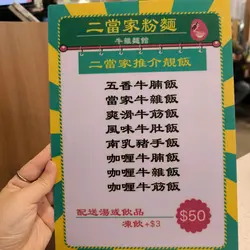 二當家粉麵
牛雜純粹
二當家推介靚飯
五香牛腩飯
當家牛雜飯
爽滑牛筋飯
風味牛肚飯
南乳豬手飯
咖喱牛腩飯
咖喱牛筋飯
咖喱牛雜飯
配送湯或飲品
凍飲+$3
$50